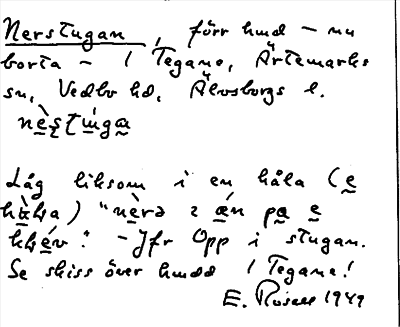 Nerstugan, förr hmd - nu
borta - / Tegane, Ärtemarks
sn, Vedbo hd, Älvsborgs l.
nèstúga
Låg liksom i en håla (e
håla) "nèrə i ǽn på e
:" - Jfr Opp i stugan.
Se skiss över hmdd / Tegane!
E. Rosell 1949